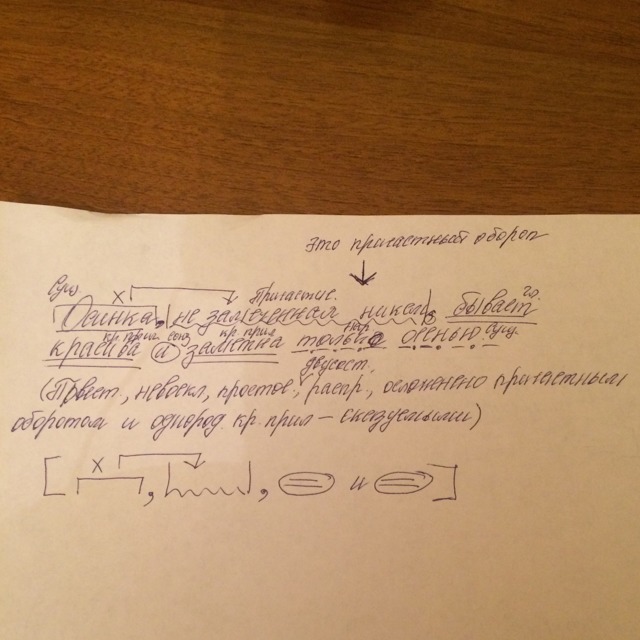 это причастный оборот
Сущ. х Причастие. гл.
Осинка, не замеченная никем, бывает
кр. прил. союз кр. прил нар сущ.
красива и заметна только осенью.
двусост.
(Повест., невоскл, простое, распр., осложнено причастным
оборотом и однород. кр. прил – сказуемыми)
[ х , , и ]